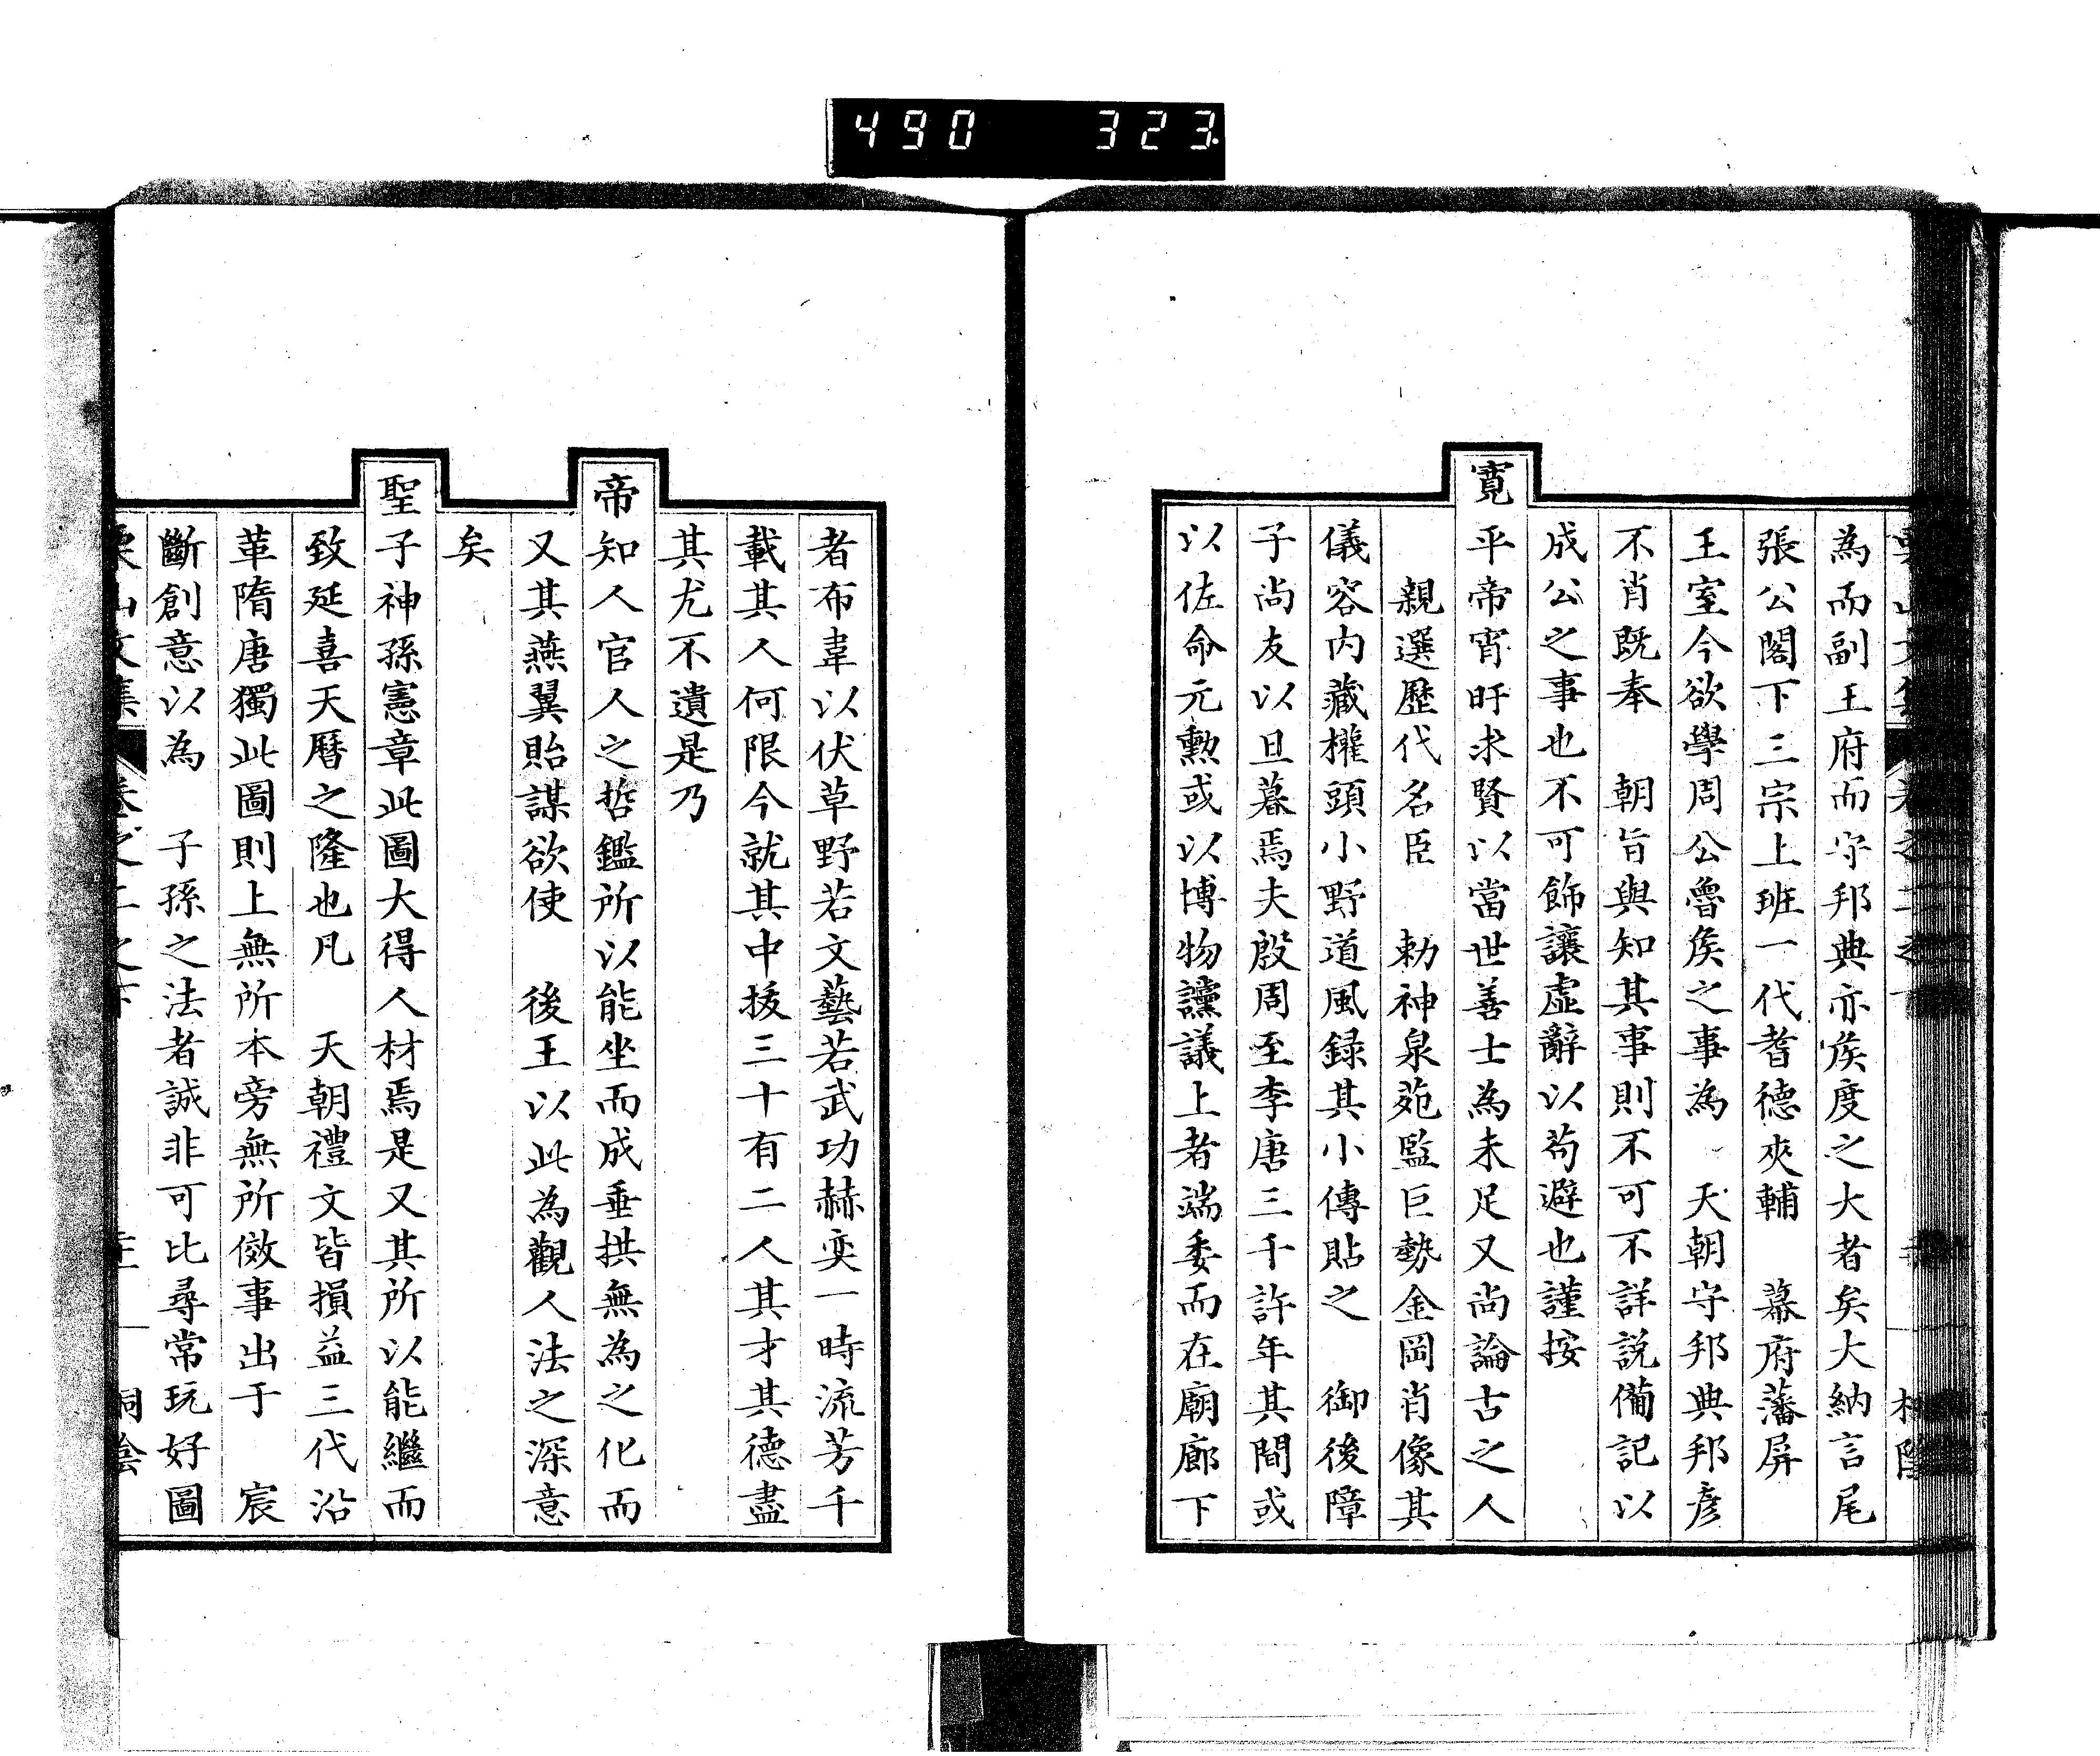 490 323
為而副王府而守邦典亦侯度之大者矣大納言尾
張公閣下三宗上班一代耆德夾輔　幕府藩屏
王室今欲學周公魯侯之事為　天朝守邦典邦彦
不肖既奉　朝旨與知其事則不可不詳説備記以
成公之事也不可飾讓虛辭以苟避也謹按
寬平帝宵旰求賢以當世善士為未足又尚論古之人
親選歷代名臣　勅神泉苑監巨勢金岡肖像其
儀容内藏權頭小野道風録其小傳貼之　御後障
子尚友以旦暮焉夫殷周至李唐三千許年其間或
以佐命元勲或以博物讜議上者端委而在廟廊下
者布韋以伏草野若文藝若武功赫奕一時流芳千
載其人何限今就其中拔三十有二人其才其德盡
其尤不遺是乃
帝知人官人之哲鑑所以能坐而成垂拱無為之化而
又其燕翼貽謀欲使　後王以此為觀人法之深意
矣
聖子神孫憲章此圖大得人材焉是又其所以能繼而
致延喜天曆之隆也凡　天朝禮文皆損益三代沿
革隋唐獨此圖則上無所本旁無所倣事出于　宸
斷創意以為　子孫之法者誠非可比尋常玩好圖